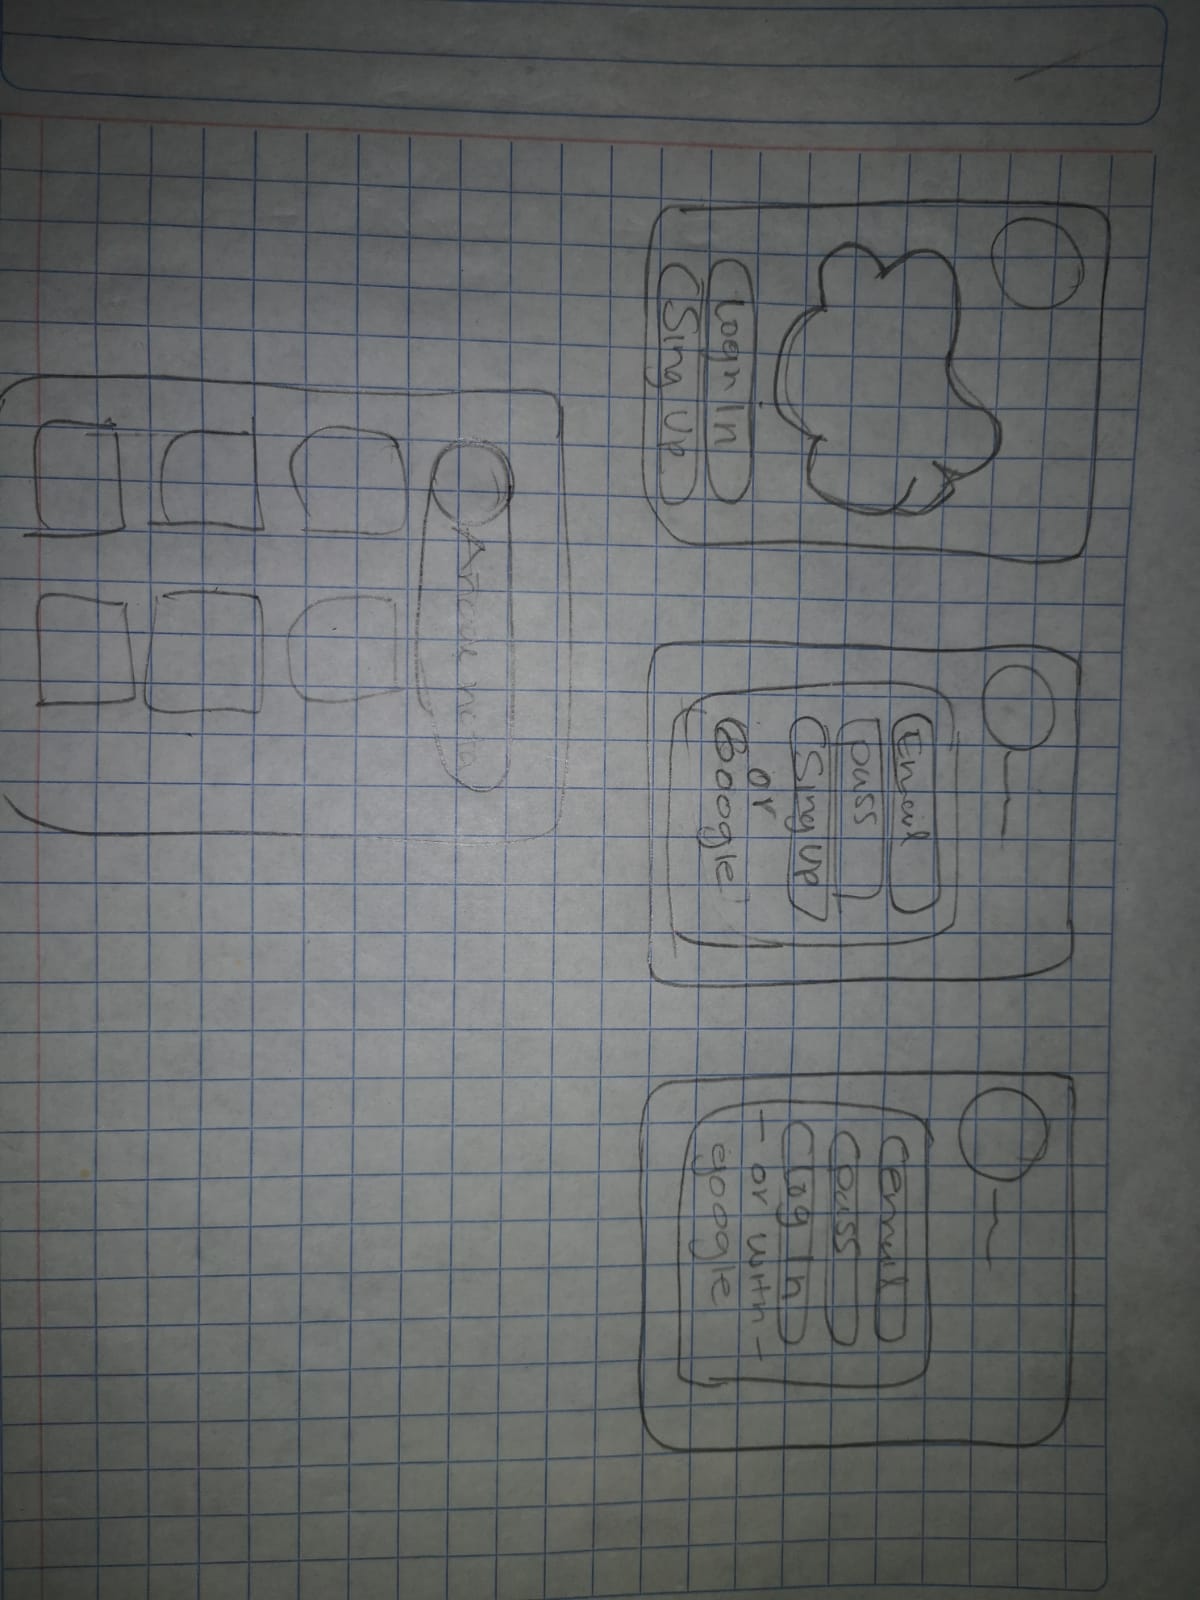 Logn In
Sing Up
Email
pass
Sing Up
or
Google
email
pass
Log In
- or with -
google
Añade nota